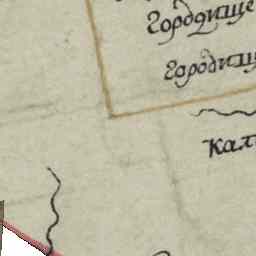 Городище
Городищ
Кал